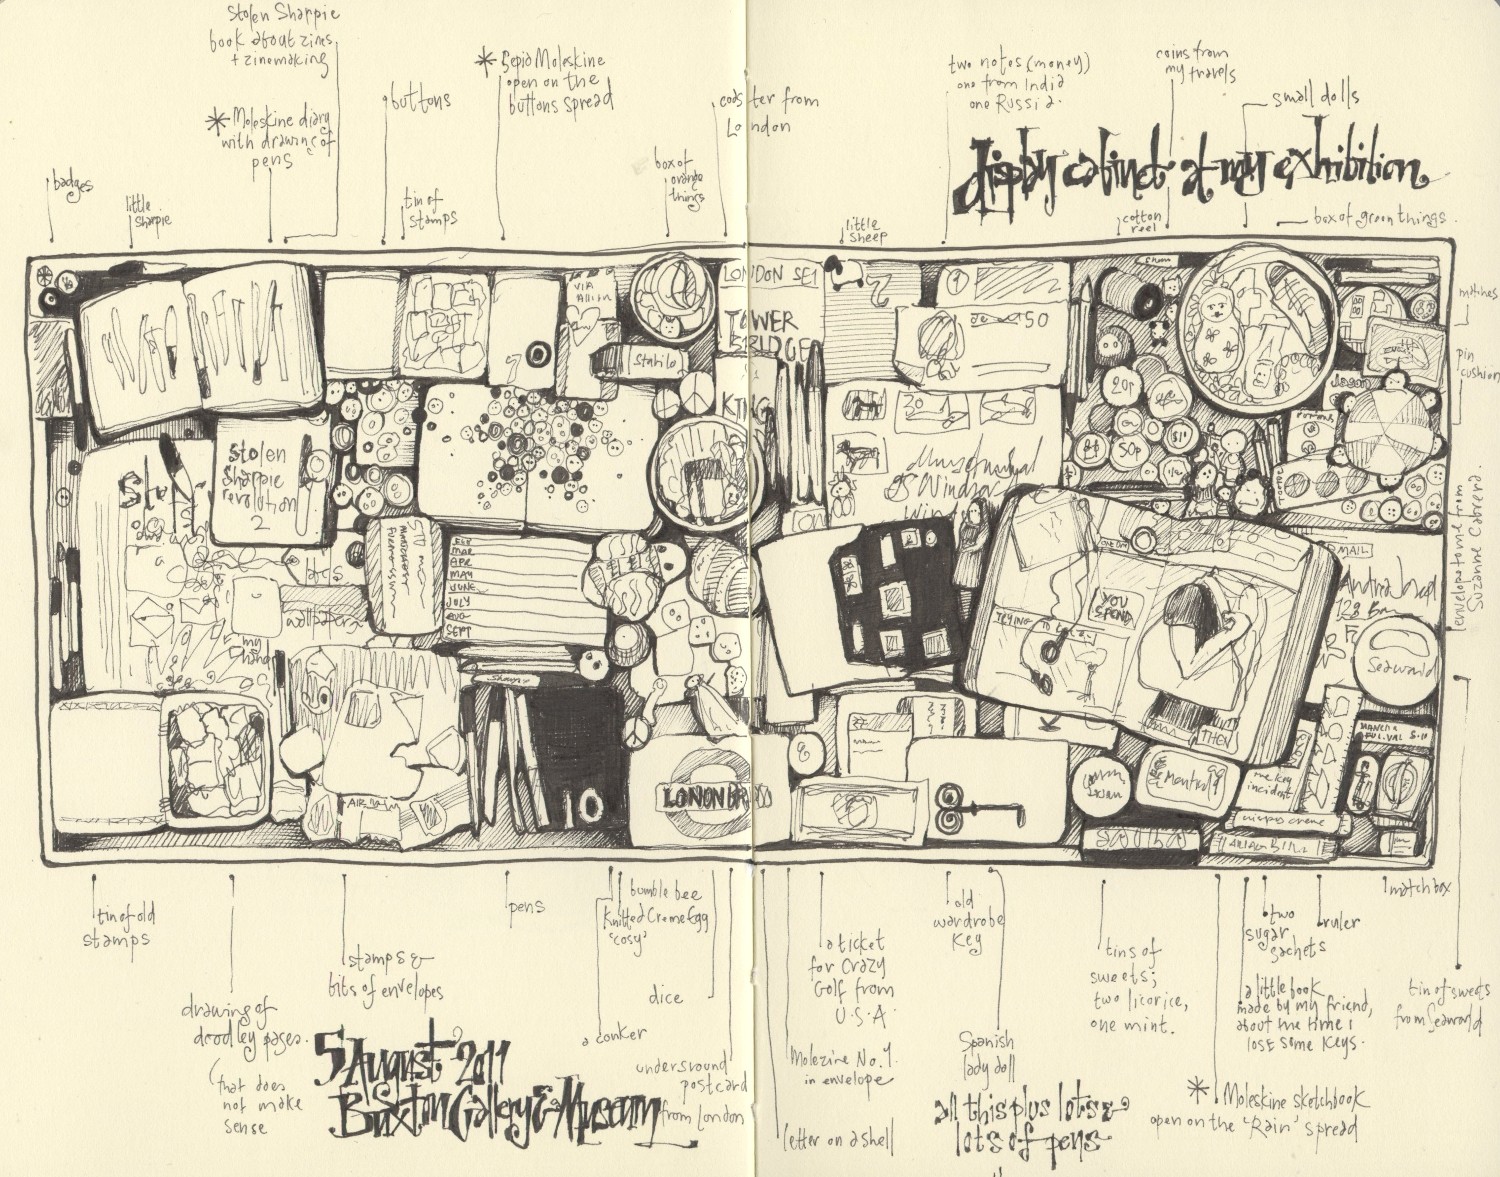 Stolen Sharpie
book about zines
+ zinemaking
* Moleskine diary
with drawing of
pens
badges
little
sharpie
buttons
tin of
stamps
* Sepia Moleskine
open on the
buttons spread
coaster from
London
box of
orange
things
two notes (money)
one from India
one Russia.
coins from
my travels
small dolls
Display cabinet at my exhibition
little
sheep
cotton
reel
box of green things.
matches
pin
cushion
envelopatome from
Suzanne Cabrera.
VIA
Stabilo
LONDON SE1
TOWER
BRIDGE
KING
50
20p
50p
$1
Stolen
Sharpie
revolution
2
FEB
MAR
APR
MAY
JUNE
JULY
AUG
SEPT
wallpaper
my
thing
MAIL
YOU
SPEND
TRYING TO
THEN
Seaworld
10
LONDON BR
AIR
the key
incident
tin of old
stamps
drawing of
doodley pages.
(that does
not make
sense
stamps &
bits of envelopes
5 August 2011
Buxton Gallery & Museum
pens
bumble bee
Knitted Creme Egg
'cosy'
a conker
dice
underground
postcard
from London
a ticket
for Crazy
Golf from
U.S.A
Molezine No.1.
in envelope
letter on a shell
old
wardrobe
key
Spanish
lady doll
all this plus lots &
lots of pens
tins of
sweets;
two licorice,
one mint.
two
sugar
sachets
ruler
matchbox
a little book
made by my friend,
about the time I
lost some keys.
tin of sweets
from Seaworld
* Moleskine sketchbook
open on the 'Rain' spread